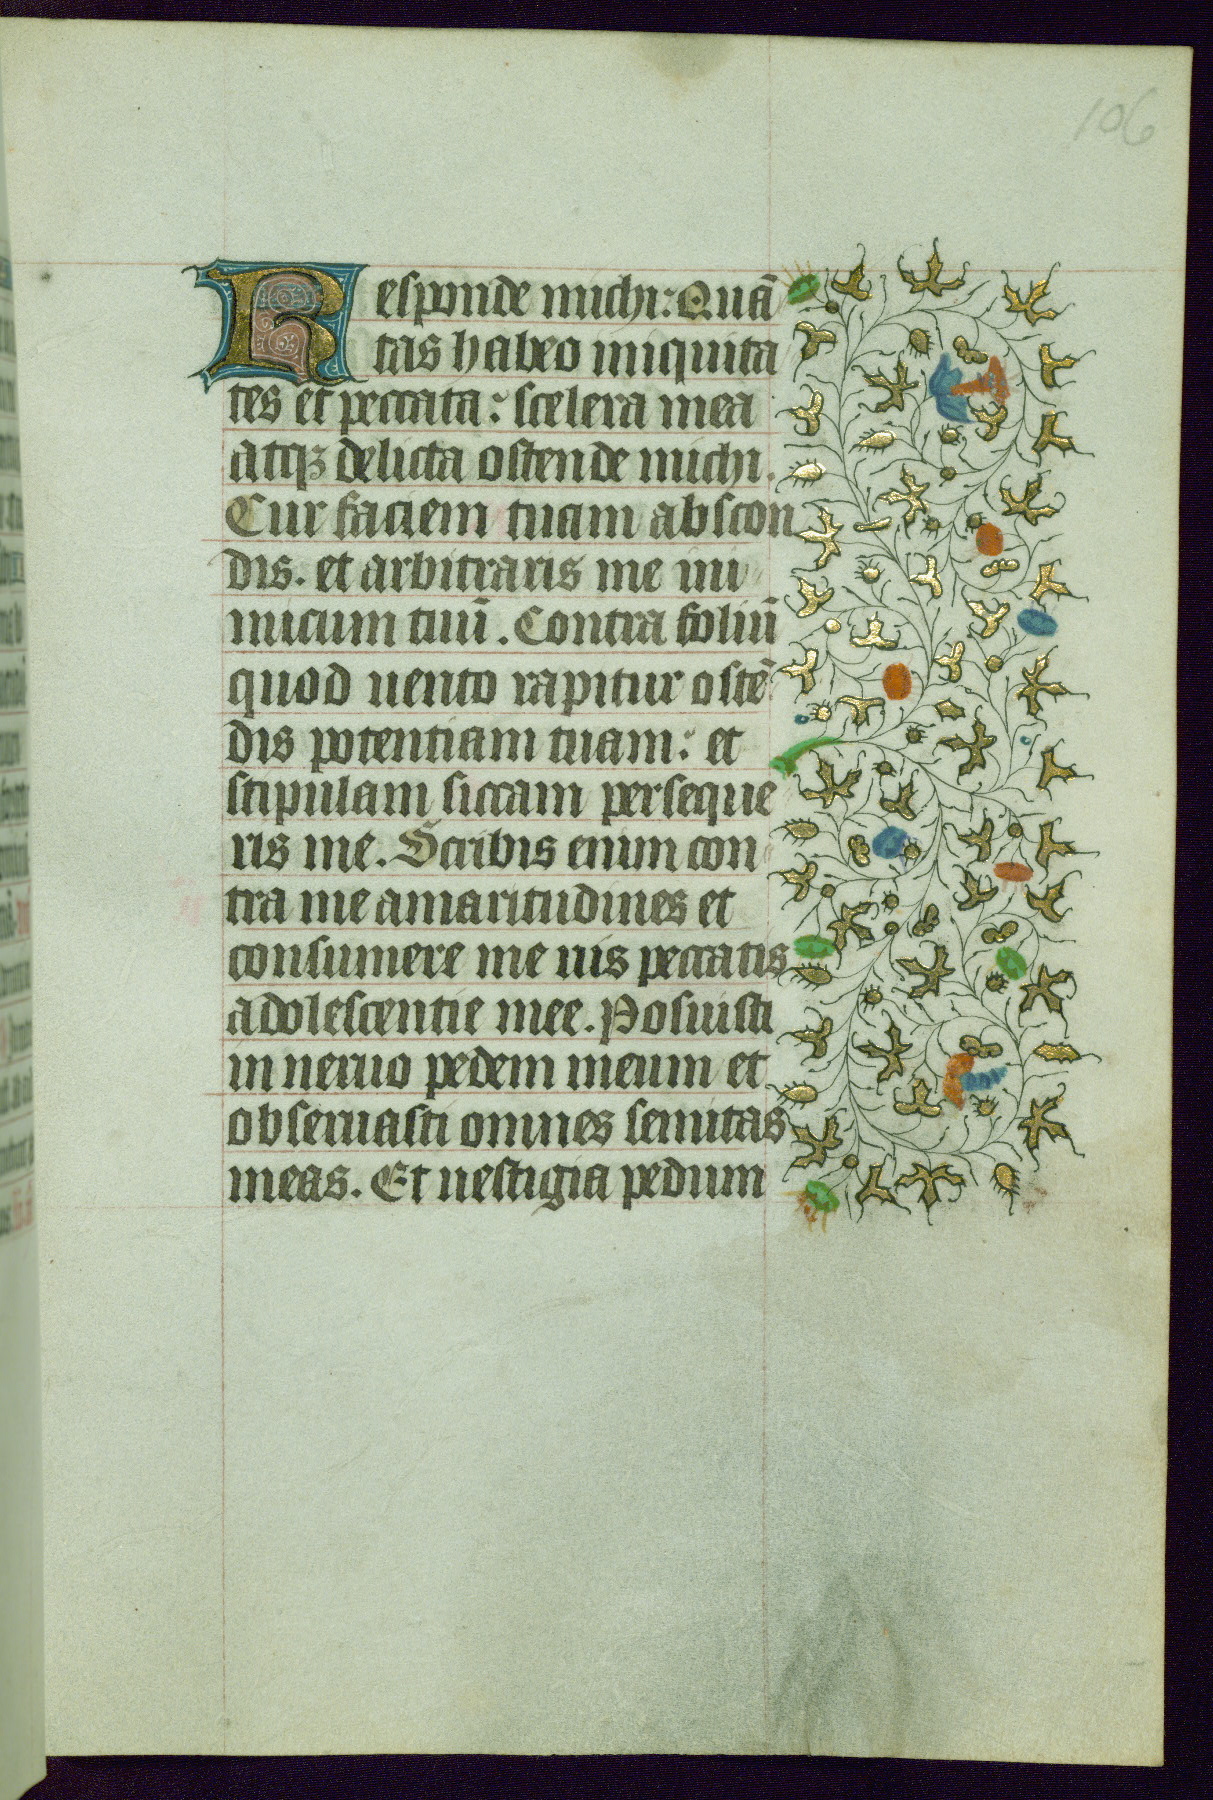 106
Responde michi: Quā
tas habeo iniquita
tes et peccata: scelera mea
atqꝫ delicta ostende michi.
Cur faciem tuam abscon
dis. et arbitraris me ini
micum tuū. Contra foliū
quod uento rapitur ostē
dis potentiam tuam: et
stipulam siccam perseque
ris me. Scribis enim con
tra me amaritudines et
consumere me uis peccatis
adolescentie mee. Posuisti
in neruo pedem meum et
obseruasti omnes semitas
meas. Et uestigia pedum